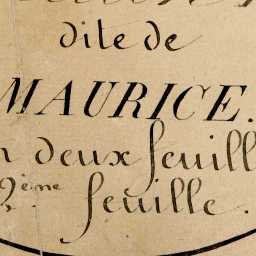 dite de
MAURICE.
n deux feuill
2ème feuille.